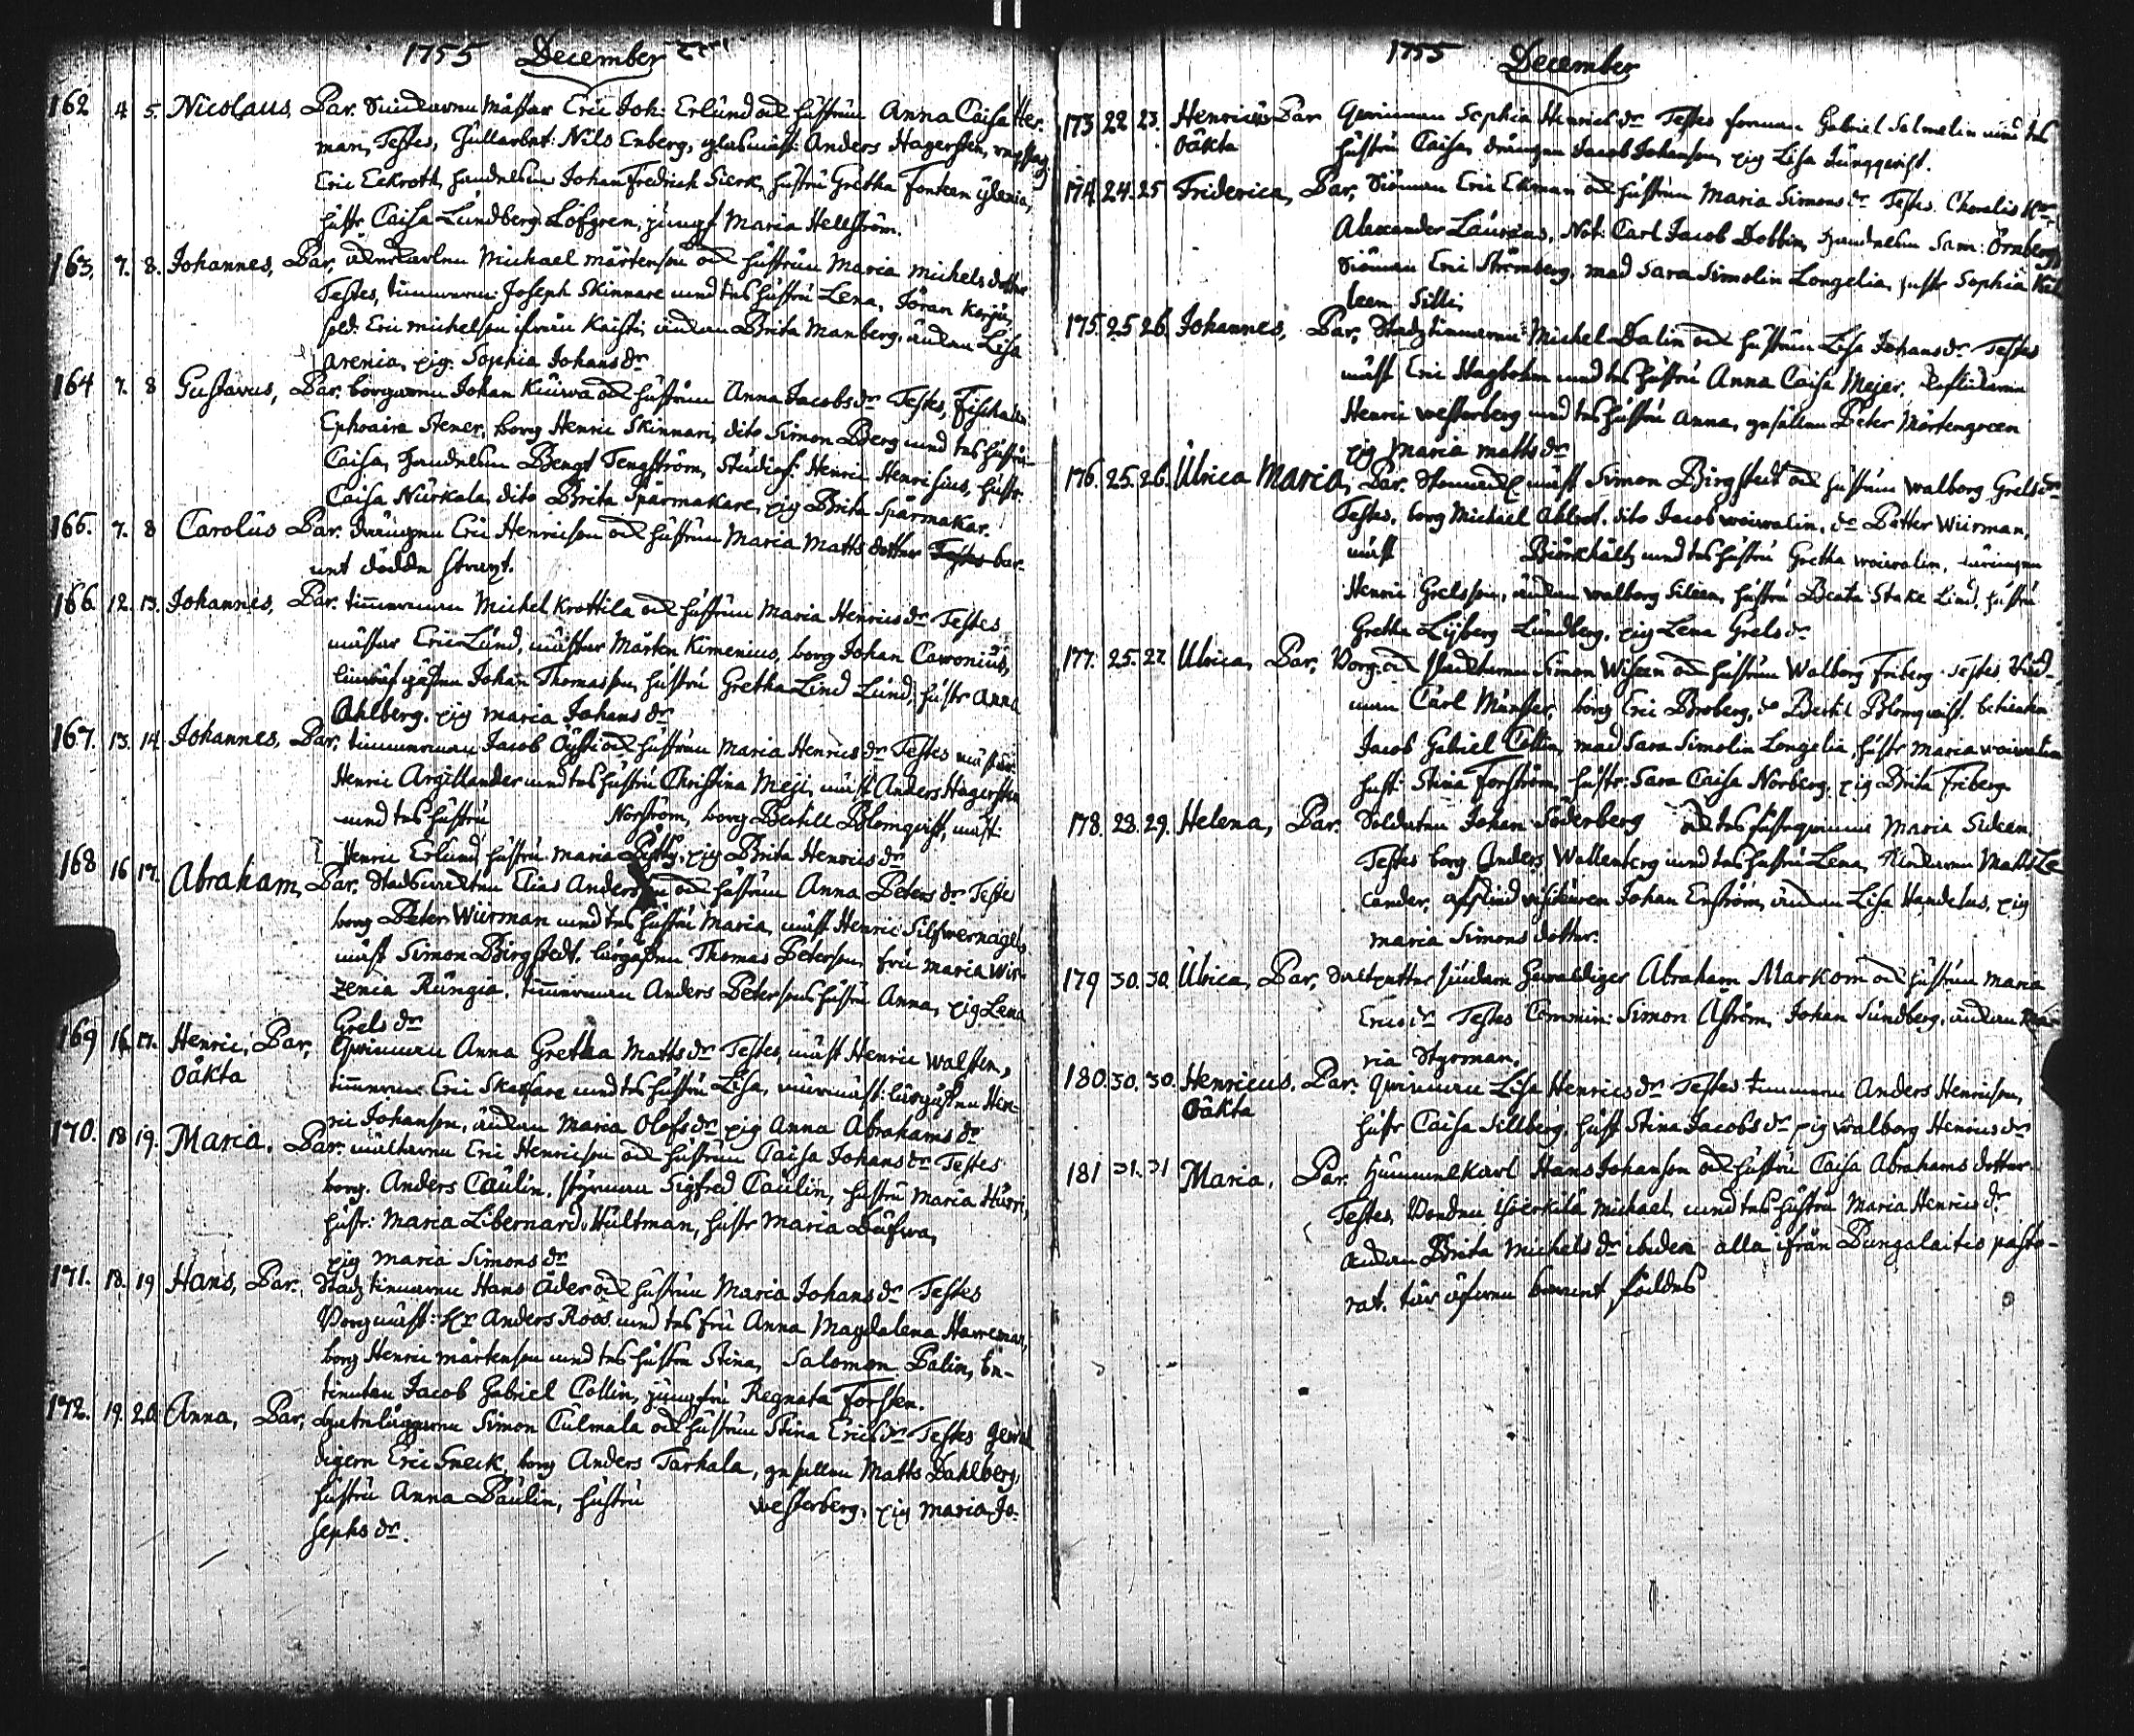 1755 December
162 4 5. Nicolaus, Par. Snickaren mästar Eric Joh: Erlund och hustrun Anna Caisa Her-
man, Testes, Gullarbet: Nils Enberg, glasmäst: Anders Hagersten,
Eric Eckroth, handelsm Johan Fredrich Sierk, hustru Gretha Fonteen
hustr Caisa Lundberg Löfgren, jungf Maria Hellström.
163, 7. 8. Johannes, Par, Michael mårtenson och hustrun Maria michels dotter
Testes, timmerm: Joseph Skinnare med dess hustru Lena, Jöran Korju,
sold: Eric michelson ifrån änkan Brita Manberg, änkan Lisa
arenia, pig. Sophia Johans dr
164 7. 8 Gustavus, Par. borgaren Johan Kuirva och hustrun Anna Jacobs dr Testes,
Ephraim Stener, borg Henric Skinnari, dito Simon Berg med dess hustru
Caisa, handelsm Bengt Tengström, Studios: Henric Henricius, hustr
Caisa Nurkala, dito Brita Spärmakare, pig Brita Spärmakar.
166. 7. 8 Carolus Par. drängen Eric Henricson och hustrun Maria Matts dotter Testes bar-
net dödde straxt.
166. 12. 13. Johannes, Par. timmerman Michel Krottila och hustrun Maria Henrics dr Testes
mästar Eric Lund, mästar Mårten Kimenius, borg Johan Cawonius,
Johan Thomasson, hustru Gretha Lind Lund, hustr Anna
Ahlberg, pig Maria Johans dr
167. 13. 14. Johannes, Par, timmerman Jacob Öysti och hustrun Maria Henrics dr Testes mästar
Henric Argillander med dess hustru Christina Meji, mäst Anders Hagersten
med dess hustru Norström, borg Bertill Blomqvist, mäst:
Henric Erlund, hustru Maria pig Brita Henrics dr
168 16 17. Abraham, Par. Elias Anderson och hustrun Anna Peters dr Testes
borg Peter Wiirman med dess hustru Maria, mäst Henric Silfvernagel,
mäst Simon Birgstedt, lärgåssen Thomas Peterson, fru Maria Wir-
zenia Rungia, timmerman Anders Petersons hustru Anna, pig Lena
Grels dr
169 16. 17. Henric, Par, Qvinnan Anna Gretha Matts dr Testes, mäst Henric Walsten,
oäkta timmerm: Eric med dess hustru Lisa, murmäst: lärgåssen Hen-
ric Johanson, änkan Maria Olofs dr pig Anna Abrahams dr
170. 18 19. Maria, Par. Eric Henricson och hustrun Caisa Johans dr Testes
borg. Anders Caulin, styrman Sigfred Caulin, hustru Maria Hurri,
hustr: Maria Libernard Hultman, hustr Maria Dufva,
pig Maria Simons dr
171. 18. 19 Hans, Par. Stadz timmerm Hans Åder och hustrun Maria Johans dr Testes
Borgmäst: Hr Anders Roos med dess fru Anna Magdalena Havreman,
borg Henric mårtenson med dess hustru Stina, Salomon Palin, be-
tienten Jacob Gabriel Collin, jungfru Regnata Forsten.
172. 19. 20. Anna, Par, Simon Culmala och hustrun Stina Erics dr Testes Gewal
digern Eric Sneck, borg Anders Tarhala, gesellen Matts Dahlberg,
hustru Anna Paulin, hustru Westerberg, pig Maria Jo-
sephs dr.
1755 December
173 22 23. Henricus Par Qvinnan Sophia Henrics dr Testes forman Gabriel Salmelin med dess
oäkta hustru Caisa, drängen Jacob Johanson, pig Lisa Lungqvist.
174. 24. 25 Friderica, Par, Siöman Eric Ekman och hustrun Maria Simons dr Testes. Choralis Hr
Alexander Laurœus, Not: Carl Jacob Dobbin, handelsm Sam: Örnberg,
Siöman Eric Strömberg, mad Sara Simolin Longelia, hustr Sophia Kil
leen Silli,
175. 25 26. Johannes, Par, Stadz timmerm: Michel Dalin och hustrun Lisa Johans dr Testes
mäst Eric Hagbohm med dess hustru Anna Caisa Mejer,
Henric Westerberg med dess hustru Anna, gesellen Peter Mårtengreen
pig Maria Matts dr
176. 25. 26. Ulrica Maria, Par. mäst Simon Birgstedt och hustrun Walborg Grels dr
Testes, borg Michael Ahlrot, dito Jacob woiwalin, do Petter Wiirman,
mäst Biörkhultz med dess hustru Gretha woiwalin, drängen
Henric Grelsson, änkan Walborg Sileen, hustru Beata Stake Lind, hustru
Gretha Lyberg Lundberg, pig Lena Grels dr
177. 25. 27. Ulrica, Par. Borg: och Simon Wiseen och hustrun Walborg Friberg Testes
Carl Munster, borg Eric Broberg, do Bertil Blomqvist, betienten
Jacob Gabriel Collin, mad Sara Simolin Longelia, hustr Maria woiwalin
hust: Stina Forström, hustr: Sara Caisa Norberg, pig Brita Friberg.
178. 28. 29. Helena, Par. Soldaten Johan Söderberg och dess Maria Sideen,
Testes borg Anders Wallenberg med dess hustru Lena, Matts Le
cander, visiteuren Johan Enström, änkan Lisa Handelus, pig
Maria Simons dotter.
179 30. 30. Ulrica, Par, Gewaldiger Abraham Markom och hustrun Maria
Erics dr Testes Commin: Simon Åström, Johan Sundberg, änkan Ma-
ria Styrman.
180. 30. 30. Henricus, Par. Qvinnan Lisa Henrics dr Testes timmerm Anders Henricson,
oäkta hustr Caisa Sillberg, hust Stina Jacobs dr pig Walborg Henrics dr
181 31. 31 Maria, Par. Hans Johanson och hustru Caisa Abrahams dotter
Testes, Bonden Michael med dess hustru Maria Henrics dr
änkan Brita Michels dr ibidem alla ifrån Pungalaitis pasto-
rat, där äfwen barnet föddes